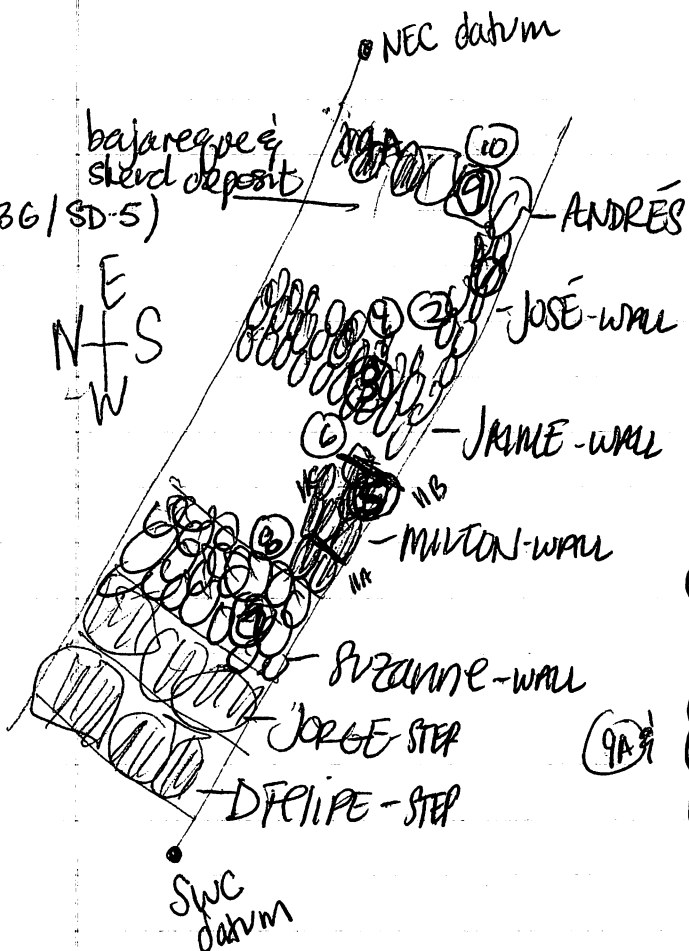 NEC datum
bajareque &
sherd deposit
36 / SD-5)
10
9A
9
ANDRÉS
E
N S
W
7
2
JOSÉ-WALL
9
8
JAIME-WALL
6
11C
5
11B
MILTON-WALL
8
11A
SUZANNE-WALL
JORGE-STEP
9A &
DFELIPE-STEP
SWC
datum